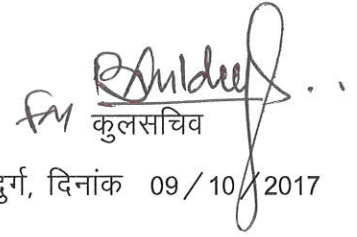 कुलसचिव
दुर्ग, दिनांक 09/10/2017